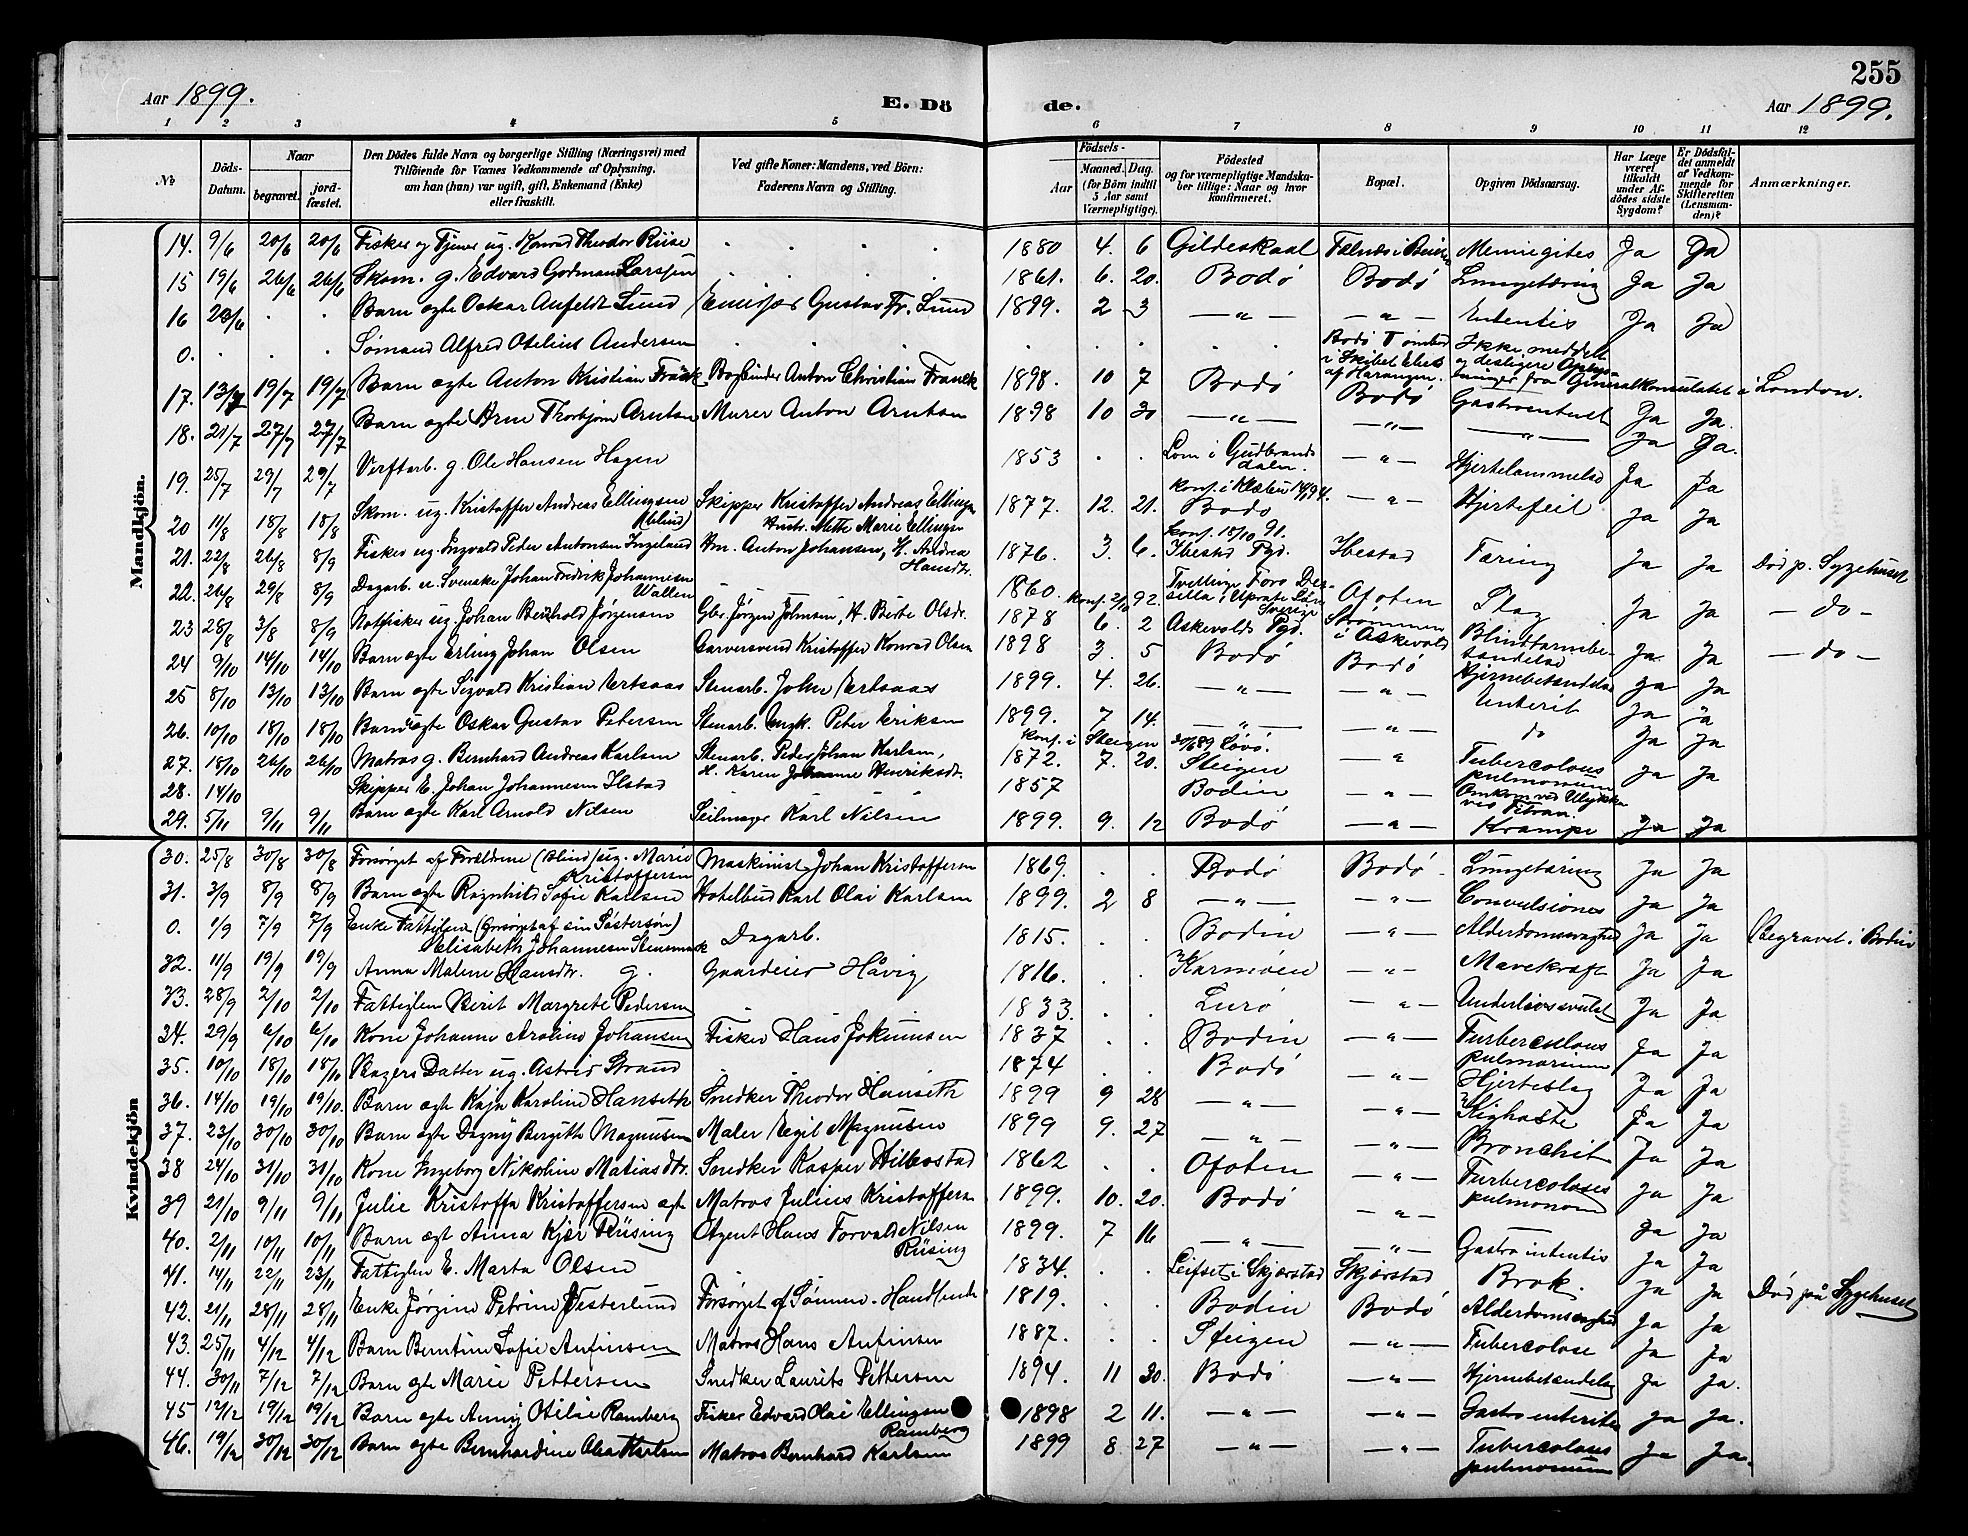 255
Aar 1899. E. Dö de. Aar 1899.
1 2 3 4 5 6 7 8 9 10 11 12
No. Döds-Datum. Naar begravet. jordfæstet. Den Dödes fulde Navn og borgerlige Stilling (Næringsvei) med Tilföiende for Voxnes Vedkommende af Oplysning, om han (hun) var ugift, gift, Enkemand (Enke) eller fraskilt. Ved gifte Koner: Mandens, ved Börn: Faderens Navn og Stilling. Födsels- Aar Maaned. Dag. (for Börn indtil 5 Aar samt Værnepligtige). Födested og for værnepligtige Mandskaber tillige: Naar og hvor konfirmeret. Bopæl. Opgiven Dödsaarsag. Har Læge været tilkaldt under Afdödes sidste Sygdom? Er Dödsfaldet anmeldt af Vedkommende for Skifteretten (Lensmanden)? Anmærkninger.
Mandkjön.
14. 9/6 20/6 20/6 Fisker og Tjener ug. Konrad Theodor Riise 1880 4. 6 Gildeskaal Ja Ja
15 19/6 26/6 26/6 Skom. g. Edvard Godman Larssen 1861. 6. 20. Bodø Bodø Lungetæring Ja Ja
16 23/6 . . Barn ægte Oskar Anfeldt Lund Gustav Fr. Lund 1899. 2 3 — " — — " — Ja Ja
0. . . . Sømand Alfred Otelius Andersen . . . . Bodø Tømtes i Skibet af Haranger. Ikke meddelt og desligere Oplysninger fra Generalkonsulatet i London.
17. 13/7 19/7 19/7 Barn ægte Anton Kristian Franck Bogbinder Anton Christian Franck 1898. 10 7 Bodø Bodø Gastroenterit Ja Ja.
18. 21/7 27/7 27/7 Barn ægte Arne Thorbjørn Arntsen Murer Anton Arntsen 1898 10 30 — " — — " — — " — Ja Ja.
19. 25/7 29/7 29/7 Verftarb. g. Ole Hansen Hagen 1853 . . Lom i Gudbrandsdalen. — " — Hjertelammelse Ja Ja
20 11/8 18/8 18/8 Skom. ug. Kristoffer Andreas Ellingsen (blind) Skipper Kristoffer Andreas Ellingsen Hustr. Mette Marie Ellingsen 1877. 12. 21. konf. i Klæbu 14/9 94. Bodø — " — Hjertefeil Ja Ja
21. 22/8 26/8 8/9 Fisker ug. Ingvald Peder Antonsen Ingeland Hm. Anton Johansen, H. Andrea Hansdtr. 1876. 3. 6. konf. 18/10 91. Ibestad Pgd. Ibestad Tæring Ja Ja Død p. Sygehuset
22. 26/8 29/8 8/9 Dagarb. Svenske Johan Fredrik Johannesen Wallen — 1860. Sverige Ofoten Slag Ja Ja — do —
23 28/8 3/8 8/9 Notfisker ug. Johan Berthold Jørgensen Gbr. Jørgen Johnsen, H. Berte Olsdr. 1878 6. 2 konf. 2/10 92. Askevolds Pgd. Strømmen i Askevold Blindtarmbetændelse Ja Ja — do —
24 9/10 14/10 14/10 Barn ægte Erling Johan Olsen Garversvend Kristoffer Konrad Olsen 1898 3. 5 Bodø Bodø Hjernebetændelse Ja Ja
25 8/10 13/10 13/10 Barn ægte Sigvald Kristian Ertsaas Stenarb. John Ertsaas 1899. 4. 26. — " — — " — Enterit Ja Ja
26. 10/10 18/10 18/10 Barn ægte Oskar Gustav Petersen Stenarb. Peter Eriksen 1899. 7 14. — " — — " — do Ja Ja
27. 18/10 26/10 26/10 Matros g. Bernhard Andreas Karlsen Stenarb. Peder Johan Karlsen, H. Karen Johanne Henriksdtr. konf. i Steigen 1872. 7. 20. Steigen — " — Tuberculous pulmonum Ja Ja
28. 14/10 Skipper E. Johan Johannesen Ilstad 1857 Bodin — " — Omkom ved Ulykke
29. 5/11 9/11 9/11 Barn ægte Karl Arnold Nilsen Seilmager Karl Nilsen 1899. 9. 12 Bodø — " — Krampe Ja Ja
Kvindekjön
30. 25/8 30/8 30/8 Forsørget af Forældrene (blind) ug. Marie Kristoffersen Maskinist Johan Kristoffersen 1869. . . Bodø Bodø. Lungetæring Ja Ja
31. 3/9 8/9 8/9 Barn ægte Ragnhild Sofie Karlsen Hotelbud Karl Olai Karlsen 1899. 2 8 — " — — " — Convulsiones Ja Ja
0. 1/9 7/9 7/9 Enke Fattiglem (forsørget af sin Søstersøn) Elisabeth Johannesen Stensmark Dagarb. 1815. . . Bodin — " — Alderdomssvaghed Ja Ja Begravet i Bodin
32. 11/9 19/9 19/9 Anna Malene Hansdtr. g. Gaardeier Håvig 1816. . . Karmøen — " — Mavekræft Ja Ja
33. 28/9 2/10 2/10 Fattiglem Berit Margrete Pedersen . 1833. . . Lurø — " — Underlivssvulst Ja Ja
34. 29/9 6/10 6/10 Kone Johanne Johansen Fisker Hans Jokumsen 1837 . . Bodin — " — Turberculous pulmonum Ja Ja
35. 10/10 18/10 18/10 Bagers Datter ug. Astrid Strand . 1874 . . Bodø — " — Hjerteslag Ja Ja
36. 14/10 19/10 19/10. Barn ægte Kaja Karoline Hanseth Snedker Theodor Hanseth 1899 9 28 — " — — " — Kighoste Ja Ja
37. 23/10 30/10 30/10 Barn ægte Dagny Bergitte Magnusen Maler Egil Magnusen 1899 9. 27 — " — — " — Bronchit Ja Ja
38 24/10 31/10 31/10 Kone Ingeborg Nikoline Matiasdtr. Snedker Kasper Hilbostad 1862 . . Ofoten — " — Turbercoloses pulmonom Ja Ja
39 21/10 9/11 9/11 Julie Kristoffa Kristoffersen ægte Matros Julius Kristoffersen 1899. 10. 20. Bodø — " — — Ja Ja
40. 2/11 10/11 10/11 Barn ægt Anna Kjær Riising Agent Hans Torvald Nilsen Riising 1899. 7 16 — " — — " — Gastro intentis Ja Ja
41. 14/11 22/11 23/11 Fattiglem E. Marta Olsen . 1834. . . Leifset i Skjærstad Skjærstad Brok. Ja Ja Død på Sygehuset
42. 21/11 28/11 28/11 Enke Jørgine Petrine Vesterlund Forsørget af Sønnen. Handlende 1819. . . Bodin Bodø Alderdomsvaghed Ja Ja
43. 25/11 4/12 4/12 Barn Berntine Sofie Anfinsen Matros Hans Anfinsen 1887. . . Steigen — " — Tubercolose Ja Ja
44. 30/11 7/12 7/12 Barn ægte Marie Pettersen Snedker Laurits Pettersen 1894. 11 30. Bodø — " — Hjernebetændelse Ja Ja.
45 12/12 19/12 19/12 Barn ægte Anny Otilie Ramberg Fisker Edvard Olai Ellingsen Ramberg 1898 2 11. — " — — " — Gastro enterites Ja Ja.
46. 19/12 30/12 30/12 Barn ægte Bernhardine Olea Karlsen Matros Bernhard Karlsen 1899 8. 27 — " — — " — Tubercoloses pulmonum Ja Ja.